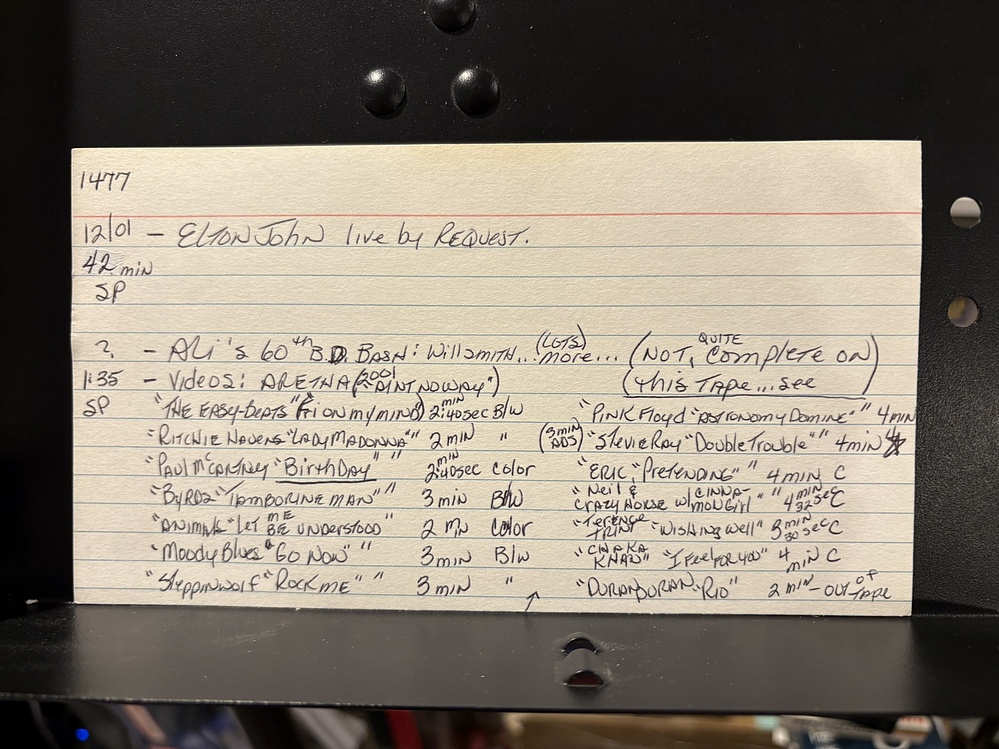 1477
12/01 - ELTON JOHN live by REQUEST.
42 min
SP
? - ALi's 60th B.D. BASH: Will Smith... (LOTS) more... (NOT, QUITE Complete on
1:35 - Videos: ARETHA (2001 "AINT NO WAY") this TAPE... see
SP "THE EASY-BEATS" (Fri ON my MIND) 2:40sec min B/W "PINK Floyd "ASTRONOMY Domine"" 4 MIN
"RITCHIE HAVENS "LADY MADONNA"" 2 min " (3 min ADS) "STEVIE RAY "Double Trouble"" 4 min
"PAUL McCARTNEY "BirthDAY"" 2:40sec min Color "ERIC, "PRETENDING"" 4 min C
"BYRDS "TAMBORINE MAN"" 3 min B/W "Neil & CRAZY HORSE w/CINNAMON Girl"" 4 min 32 sec C
"ANIMALS "LET ME BE UNDERSTOOD" 2 min Color "TERENCE TRINT "WISHING Well" 3 min 30 sec C
"Moody Blues "GO NOW"" 3 min B/W "CHAKA KHAN" "I Feel FOR YOU" 4 min C
"Steppinwolf "ROCK ME"" 3 min " "DURAN DURAN-RIO" 2 min - OUT OF TAPE